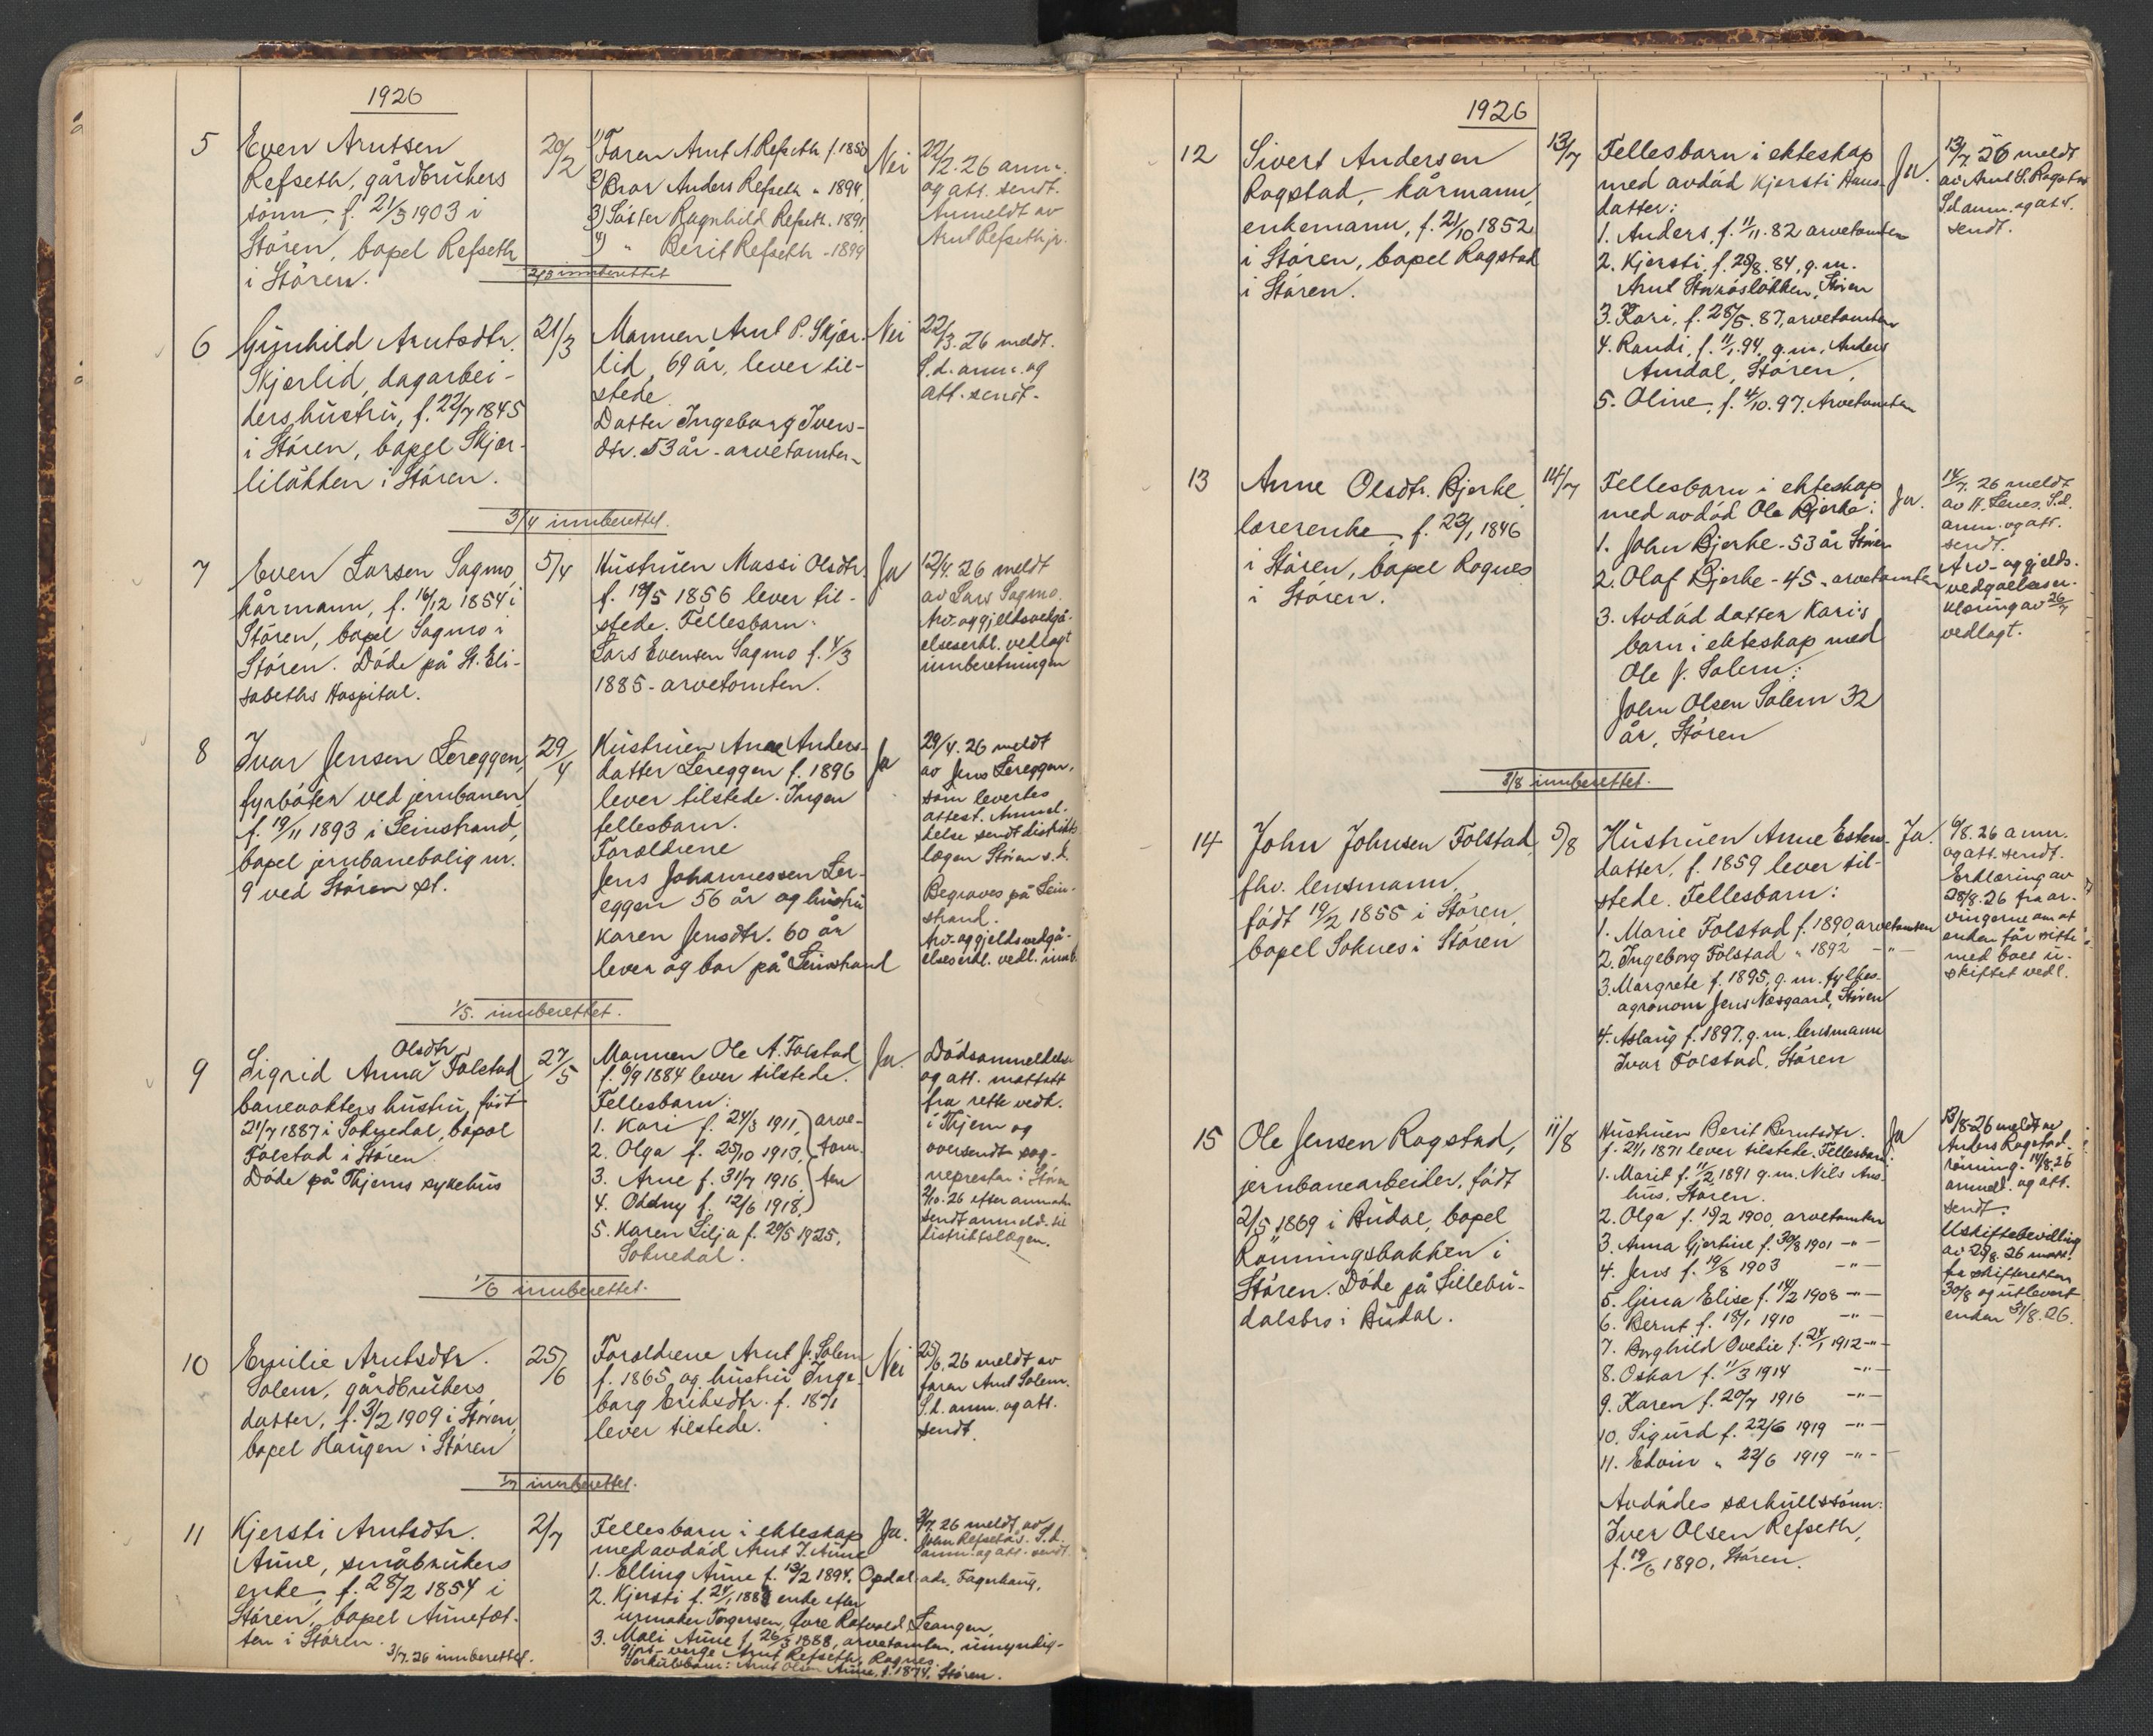 1926
5
Even Arntsen
Refseth, gårdbrukers
sönn, f. 21/3 1903 i
Stören, bopel Refseth
i Stören.
20/2
1) Faren Arnt A Refseth f. 1850
2) Bror Anders Refseth " 1894
3) Söster Ragnhild Refseth. 1891
4) " Berit Refseth - 1899
Nei
22/2. 26 anm.
og att. sendt.
Anmeldt av
Arnt Refseth jr.
2/3 innberettet
6
Gunhild Arntsdtr.
Skjerlid, dagarbei-
ders hustru, f. 22/7 1845
i Stören, bopel Skjer-
lilökken i Stören.
21/3
Mannen Arnt P. Skjer-
lid, 69 år, lever til-
stede
Datter Ingeborg Ivers-
dtr. 53 år - arvetomten
Nei
22/3. 26 meldt.
S.d. anm. og
att. sendt.
3/4 innberettet.
7
Even Larsen Sagmo,
kårmann, f. 16/12 1854 i
Stören, bopel Sagmo i
Stören. Döde på St. Eli-
sabeths Hospital.
5/4
Hustruen Massi Olsdtr.
f. 19/5 1856 lever til-
stede. Fellesbarn:
Lars Evensen Sagmo f. 4/3
1885 - arvetomten.
Ja
12/4. 26 meldt
av Lars Sagmo.
Arv- og gjeldsvedgå-
elseserkl. vedlagt
innberetningen
8
Ivar Jensen Lereggen,
fyrböter ved jernbanen,
f. 19/11 1893 i Leinstrand,
bopel jernbanebolig nr.
9 ved Stören st.
29/4
Hustruen Anne Anders-
datter Lereggen f. 1896
lever tilstede. Ingen
fellesbarn.
Foreldrene
Jens Johannessen Ler-
eggen 56 år og hustru
Karen Jensdtr. 60 år
lever og bor på Leinstrand
Ja
29/4. 26 meldt
av Jens Lereggen,
som levertes
attest. Anmel-
delse sendt distrikts-
lægen Stören s.d.
Begraves på Lein-
strand.
Arv- og gjeldsvedgå-
elseserkl. vedl. innb.
1/5. innberettet.
9
Olsdtr.
Sigrid Anna Folstad
banevokters hustru, födt
21/7 1887 i Soknedal, bopel
Folstad i Stören
Döde på Thjems sykehus
27/5
Mannen Ole A. Folstad
f. 6/9 1884 lever tilstede.
Fellesbarn:
1. Kari f. 24/3 1911, arve-
2. Olga f. 25/10 1913, tom-
3. Arne f. 31/7 1916. ten
4. Oddny f. 12/6 1918,
5. Karen Silja f. 20/5 1925,
Soknedal.
Ja.
Dödsanmeldelse
og att. mottatt
fra rette vedk.
i Thjem og
oversendt sog-
neprestan i Stören
sendt anmeld. til
distriktslægen.
1/6 innberettet.
10
Emilie Arntsdtr.
Solem, gårdbrukers
datter, f. 3/2 1909 i Stören,
bopel Haugen i Stören
25/6
Foreldrene Arnt J. Solem
f. 1865 og hustru Inge-
borg Eriksdtr. f. 1871
lever tilstede.
Nei
25/6. 26 meldt av
faren Arnt Solem.
S.d. anm. og att.
sendt.
1/7 innberettet.
11
Kjersti Arntsdtr.
Aune, småbrukers
enke, f. 28/2 1854 i
Stören, bopel Aunefet-
ten i Stören.
3/7. 26 innberettet.
2/7
Fellesbarn i ekteskap
med avdöd Arnt J. Aune
1. Elling Aune f. 13/2 1894, Opdal adr. Fagerhaug.
2. Kjersti f. 24/1 1887 enke efter
urmaker Torgersen, Leangen,
3. Mali Aune f. 26/3 1888, arvetomten, umyndig-
gjort - verge Arnt Refseth, Rognes
Særkulsbarn: Arnt Olsen Aune, f. 1874, Stören.
Ja.
3/7. 26 meldt av
John Refsethås. S.d.
anm. og att. sendt.
1926
12
Sivert Andersen
Rogstad, kårmann,
enkemann, f. 21/10 1852
i Stören, bopel Rogstad
i Stören.
13/7
Fellesbarn i ekteskap
med avdöd Kjersti Hans-
datter:
1. Anders, f. 11/11. 82 arvetomten
2. Kjersti, f. 28/8. 84, g. m.
Arnt Storröslökken, Stören
3. Kari, f. 28/5. 87, arvetomten
4. Randi, f. 11/1. 94, g. m. Anders
Amdal, Stören,
5. Oline, f. 4/10. 97. Arvetomten
Ja.
13/7. 26 meldt
av Arnt S. Rogstad
S.d anm. og att.
sendt.
13
Anne Olsdtr. Bjerke
lærerenke, f. 23/1 1846
i Stören, bopel Rognes
i Stören.
14/7
Fellesbarn i ekteskap
med avdöd Ole Bjerke:
1. John Bjerke - 53 år Stören
2. Olaf Bjerke - 45 - arvetomten
3. Avdöd datter Kari's
barn i ekteskap med
Ole J. Solem:
John Olsen Solem 32
år, Stören
Ja.
14/7. 26 meldt
av H. Lenes. S.d.
anm. og att.
sendt.
Arv- og gjelds-
vedgåelseser-
klæring av 26/7
vedlagt.
3/8 innberettet.
14
John Johnsen Folstad
fhv. lensmann,
födt 19/2 1855 i Stören,
bopel Soknes i Stören
5/8
Hustruen Anne Estens-
datter, f. 1859 lever til-
stede. Fellesbarn:
1. Marie Folstad f. 1890, arvetomten
2. Ingeborg Folstad " 1892 - " -
3. Margrete f. 1895, g. m. fylkes-
agronom Jens Næsgaard, Stören
4. Aslaug f. 1897. g. m. lensmann
Ivar Folstad, Stören
Ja.
6/8. 26 anm.
og att. sendt.
Erklæring av
28/8. 26 fra ar-
vingerne om at
enken får sitte
med boet u-
skiftet vedl.
15
Ole Jensen Rogstad,
jernbanearbeider, födt
2/5 1869 i Budal, bopel
Rönningsbakken i
Stören. Döde på Lillebu-
dalsbro i Budal.
11/8
Hustruen Berit Berntsdtr.
f. 24/1 1871 lever tilstede. Fellesbarn:
1. Marit f. 11/2 1891 g. m. Nils Aus-
hus, Stören.
2. Olga f. 19/2 1900, arvetomten
3. Anna Gjertine f. 30/8 1901 - " -
4. Jens f. 19/8 1903 - " -
5. Gina Elise f. 14/2 1908 - " -
6. Bernt f. 18/1 1910 - " -
7. Borghild Ovedie f. 24/1 1912 - " -
8. Oskar f. 11/3 1914 - " -
9. Karen f. 20/7 1916 - " -
10. Sigurd f. 22/6 1919 - " -
11. Edvin " 22/6 1919 - " -
Avdödes særkullssönn:
Iver Olsen Refseth,
f. 19/6 1890, Stören.
Ja
13/8. 26 meldt av
Anders Rogstad
rönning. 14/8. 26
anmel. og att.
sendt.
Uskiftebevilling
av 28/8. 26 mott.
fra skifteretten
30/8 og utlevert
enken 31/8. 26.